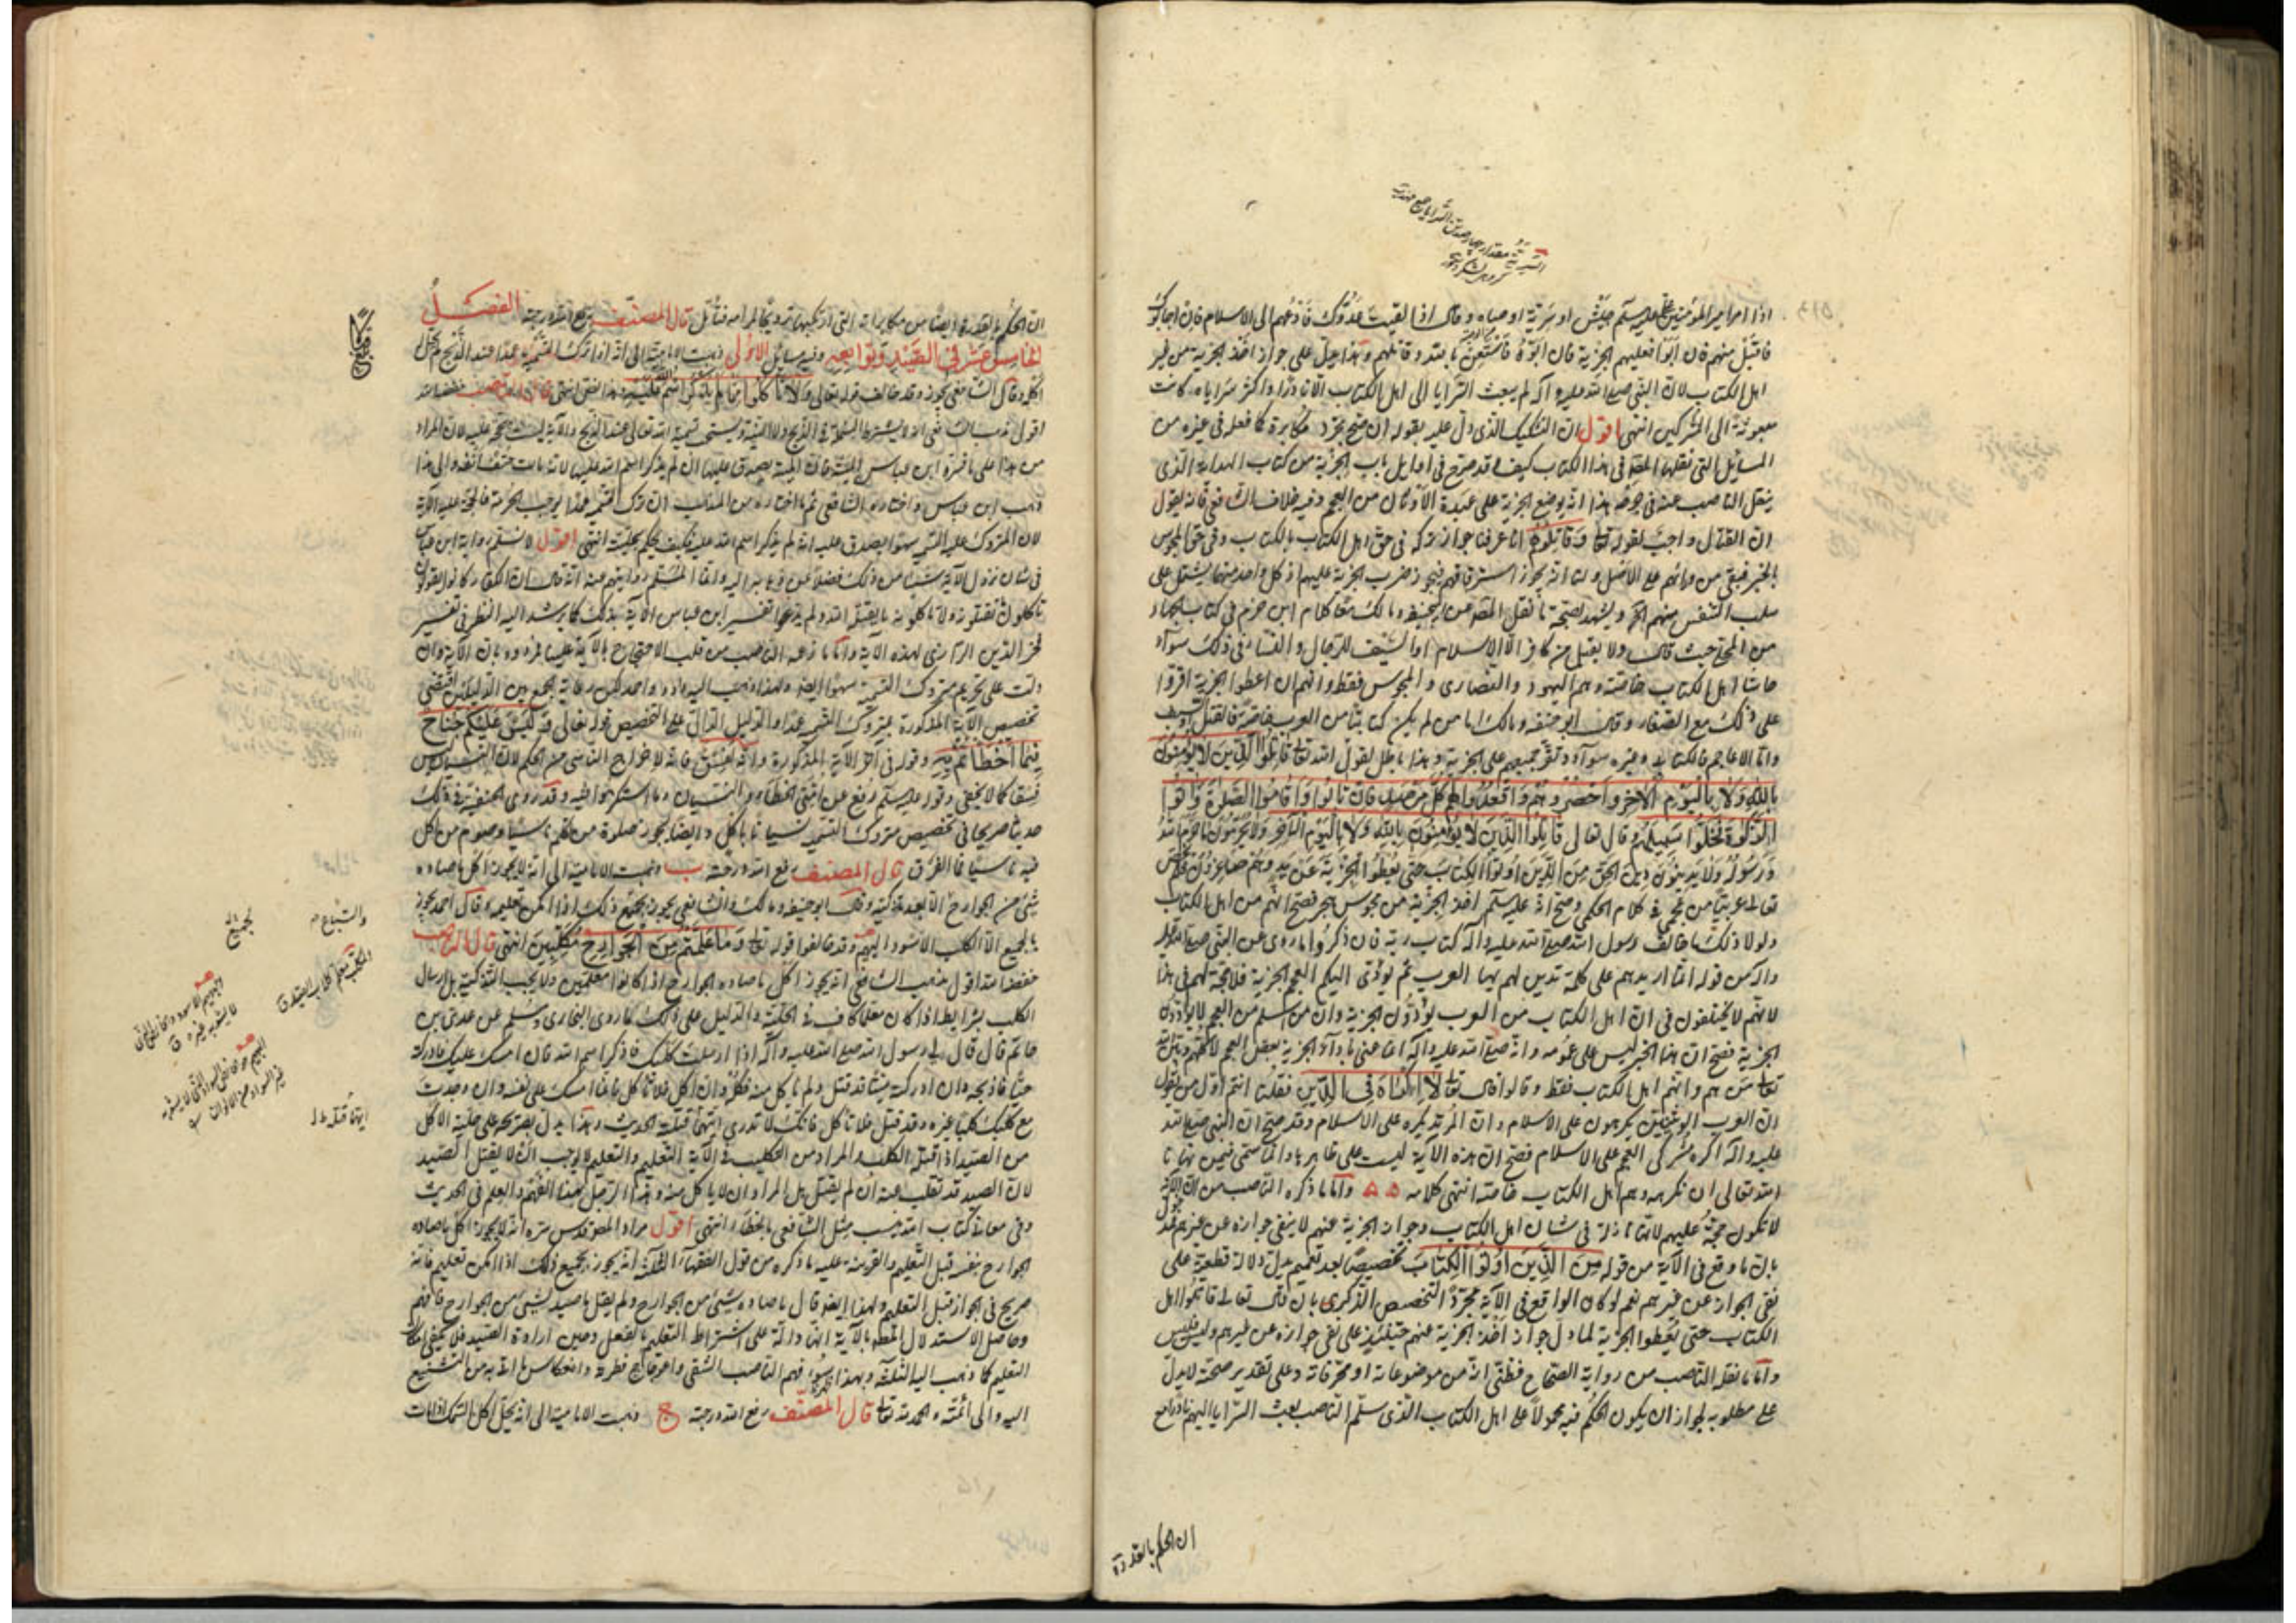 اذا امر امير المؤمنين على جيش او سرية اوصاه وقال اذا لقيت عدوك فادعهم الى الاسلام فان اجابوك
فاقبل منهم فان ابوا فعليهم الجزية فان ابوا فاستعن بالله وقاتلهم وهذا يدل على جواز اخذ الجزية من غير
اهل الكتاب لان النبي صلى الله عليه وآله لم يبعث السرايا الى اهل الكتاب الا نادرا واكثر سراياه كانت
مبعوثة الى المشركين انتهى اقول ان التشكيك الذي دل عليه بقوله ان صح مجرد مكابرة كما فعله في غيره من
المسائل التي نقلها المصنف في هذا الكتاب كيف وقد صرح في اوايل باب الجزية من كتاب الهداية الذي
ينقل الناصب عنه في جرحه هذا انه يوضع الجزية على عبدة الاوثان من العجم وفيه خلاف الشافعي فانه يقول
ان القتال واجب لقوله تعالى وقاتلوهم انا عرفنا جواز تركه في حق اهل الكتاب بالكتاب وفي حق المجوس
بالخبر فبقي من وراءهم على الاصل ولنا انه يجوز استرقاقهم فيجوز ضرب الجزية عليهم اذ كل واحد منهما يشتمل على
سلب النفس منهم ويشهد لصحة ما نقل المصنف عن ابي حنيفة ومالك معا كلام ابن حزم في كتاب الجهاد
من المحلى حيث قال ولا يقبل من كافر الا الاسلام او السيف الرجال والنساء في ذلك سواء
حاشا اهل الكتاب خاصة وهم اليهود والنصارى والمجوس فقط وانهم ان اعطوا الجزية اقروا
على ذلك مع الصغار وقال ابو حنيفة ومالك اما من لم يكن كتابيا من العرب خاصة فالقتل او السيف
واما الاعاجم فالكتابي وغيره سواء ونقر جميعهم على الجزية وهذا باطل لقول الله تعالى قاتلوا الذين لا يؤمنون
بالله ولا باليوم الآخر واحصروهم واقعدوا لهم كل مرصد فان تابوا واقاموا الصلوة وآتوا
الزكوة فخلوا سبيلهم وقال تعالى قاتلوا الذين لا يؤمنون بالله ولا باليوم الآخر ولا يحرمون ما حرم الله
ورسوله ولا يدينون دين الحق من الذين اوتوا الكتاب حتى يعطوا الجزية عن يد وهم صاغرون فلم يخص
تعالى عربيا من عجمي في كلام الحكمين وصح انه عليه السلم اخذ الجزية من مجوس هجر فصح انهم من اهل الكتاب
ولولا ذلك ما خالف رسول الله صلى الله عليه وآله كتاب ربه فان ذكروا ما روى عن النبي صلى الله عليه
وآله من قوله انما اريدهم على كلمة تدين لهم بها العرب ثم يؤدي اليكم العجم الجزية فلا حجة لهم في هذا
لانهم لا يختلفون في ان اهل الكتاب من العرب يؤدون الجزية وان من اسلم من العجم لا يؤدون
الجزية فصح ان هذا الخبر ليس على عمومه وانه صلى الله عليه وآله انما عنى باداء الجزية بعض العجم لا كلهم وبين الله
تعالى من هم وانهم اهل الكتاب فقط وقالوا قال تعالى لا اكراه في الدين فقلنا انتم اول من يقول
ان العرب الوثنيين يكرهون على الاسلام وان المرتد يكره على الاسلام وقد صح ان النبي صلى الله
عليه وآله اكره مشركي العرب على الاسلام فصح ان هذه الآية ليست على ظاهرها وانما هي فيمن نهانا
الله تعالى ان نكرهه وهم اهل الكتاب خاصة انتهى كلامه واما ما ذكره الناصب من ان الآية
لا تكون حجة عليهم لانها نازلة في شان اهل الكتاب وجواز الجزية عنهم لا ينفي جوازه عن غيرهم
بان ما وقع في الآية من قوله من الذين اوتوا الكتاب تخصيص بعد تعميم يدل دلالة قطعية على
نفي الجواز عن غيرهم نعم لو كان الواقع في الآية مجرد التخصيص الذكرى بان قال تعالى قاتلوا اهل
الكتاب حتى يعطوا الجزية لما دل جواز اخذ الجزية عنهم حينئذ على نفي جوازه عن غيرهم وليس فليس
واما ما نقله الناصب من رواية الصحاح فظني انه من موضوعاته او محرفاته وعلى تقدير صحته لا يدل
على مطلوبه لجواز ان يكون الحكم فيه محمولا على اهل الكتاب الذي سلم الناصب بعث السرايا اليهم نادرا مع
ان الحكم بالقدرة
ان الحكم بالقدرة ايضا من مكابراته التي ارتكبها ترويجا لمرامه فتأمل قال المصنف رفع الله درجته الفصل
الخامس عشر في الصيد وتوابعه وفيه مسائل الاولى ذهبت الامامية الى انه اذا ترك التسمية عمدا عند الذبح لم يحل
اكله وقال الشافعي يجوز وقد خالف قوله تعالى ولا تأكلوا مما لم يذكر اسم الله عليه انتهى قال الناصب خفضه الله
اقول مذهب الشافعي انه لا يشترط التسمية في الذبح ولا النية ويستحب تسمية الله تعالى عند الذبح والآية ليست بحجة عليه لان المراد
من هذا على ما فسره ابن عباس الميتة فان الميتة يصدق عليها ان لم يذكر اسم الله عليها لانه مات حتف انفه والى هذا
ذهب ابن عباس واختاره الشافعي ثم ما اختاره من المذاهب ان ترك التسمية عمدا يوجب الحرمة فالحجة عليه الآية
لان المتروك عليه التسمية سهوا يصدق عليه انه لم يذكر اسم الله عليه فكيف يحكم بحليته انتهى اقول لا نسلم رواية ابن عباس
في شان نزول الآية شيئا من ذلك فضلا عن وانما المسلم روايتهم عنه انه قال ان الكفار كانوا يقولون
تأكلون ما تقتلون ولا تأكلون ما يقتله الله ولم تفسير ابن عباس الآية بذلك كما يرشد اليه النظر في تفسير
فخر الدين الرازي لهذه الآية واما ما زعمه الناصب من قلب الاحتجاج بالآية علينا فمردود بان الآية وان
دلت على تحريم متروك التسمية سهوا ايضا ولهذا ذهب اليه داود واحمد لكن رعاية الجمع بين الدليلين اقتضى
تخصيص الآية المذكورة بمتروك التسمية عمدا والدليل الدال على التخصيص قوله تعالى وليس عليكم جناح
فيما اخطأتم به وقوله في آخر الآية المذكورة وانه لفسق فانه لاخراج الناسي من الحكم لان النسيان ليس
فسقا كما لا يخفى وقوله عليه السلم رفع عن امتي الخطأ والنسيان وما استكرهوا عليه وقد روى الحنفية في ذلك
حديثا صريحا في تخصيص متروك التسمية نسيانا بالحل وايضا يجوز صلوة من تكلم ناسيا وصوم من اكل
فيه ناسيا فما الفرق قال المصنف رفع الله درجته ب ذهبت الامامية الى انه لا يجوز اكل ما صاده
شيء من الجوارح الا بعد تذكيته وقال ابو حنيفة ومالك والشافعي يجوز بجميع ذلك اذا امكن تعليمه وقال احمد يجوز
بالجميع الا الكلب الاسود البهيم وقد خالفوا قوله تعالى وما علمتم من الجوارح مكلبين انتهى قال الناصب
خفضه الله اقول مذهب الشافعي انه يجوز اكل ما صاده الجوارح اذا كانوا معلمين ولا يجب التذكية بل ارسال
الكلب بشرايط اذا كان معلما كاف في الحلية والدليل على ذلك ما روى البخاري ومسلم عن عدي بن
حاتم قال قال لي رسول الله صلى الله عليه وآله اذا ارسلت كلبك فاذكر اسم الله فان امسك عليك فادركته
حيا فاذبحه وان ادركته ميتا قد قتل ولم يأكل منه فكله وان اكل فلا تأكل فانما امسك على نفسه وان وجدت
مع كلبك كلبا غيره وقد قتل فلا تأكل فانك لا تدري ايهما قتله الحديث وهذا يدل بصريحه على حلية الاكل
من الصيد اذا قتله الكلب والمراد من التكليب في الآية التعليم والتعليم لا يوجب ان لا يقتل الصيد
لان الصيد قد تغلب عنه ان لم يقتل بل المراد ان لا يأكل منه وهذا الرجل لهذا الفهم والعلم في الحديث
وفي معاني كتاب الله ينسب مثل الشافعي بالخطأ انتهى اقول مراد المصنف قدس سره انه لا يجوز اكل ما صاده
الجوارح بنفسه قبل التعليم والقرينة عليه ما ذكره من قول الفقهاء الثلثة انه يجوز بجميع ذلك اذا امكن تعليمه فانه
صريح في الجواز قبل التعليم ولهذا ايضا قال ما صاده شيء من الجوارح ولم يقل ما صيد بشيء من الجوارح فافهم
وحاصل الاستدلال المصنف بالآية انها دالة على اشتراط التعليم بالفعل وحين ارادة الصيد فلا يكفي امكان
التعليم كما ذهب اليه الثلثة وبهذا سوء فهم الناصب الشقي واعوجاج فطرته وانعكاس ما اراد به من التشنيع
اليه والى ائمته والحمد لله تعالى قال المصنف رفع الله درجته ج ذهبت الامامية الى انه يحل اكل السمك اذا مات
والسباع
لجميع
ايهما قتله